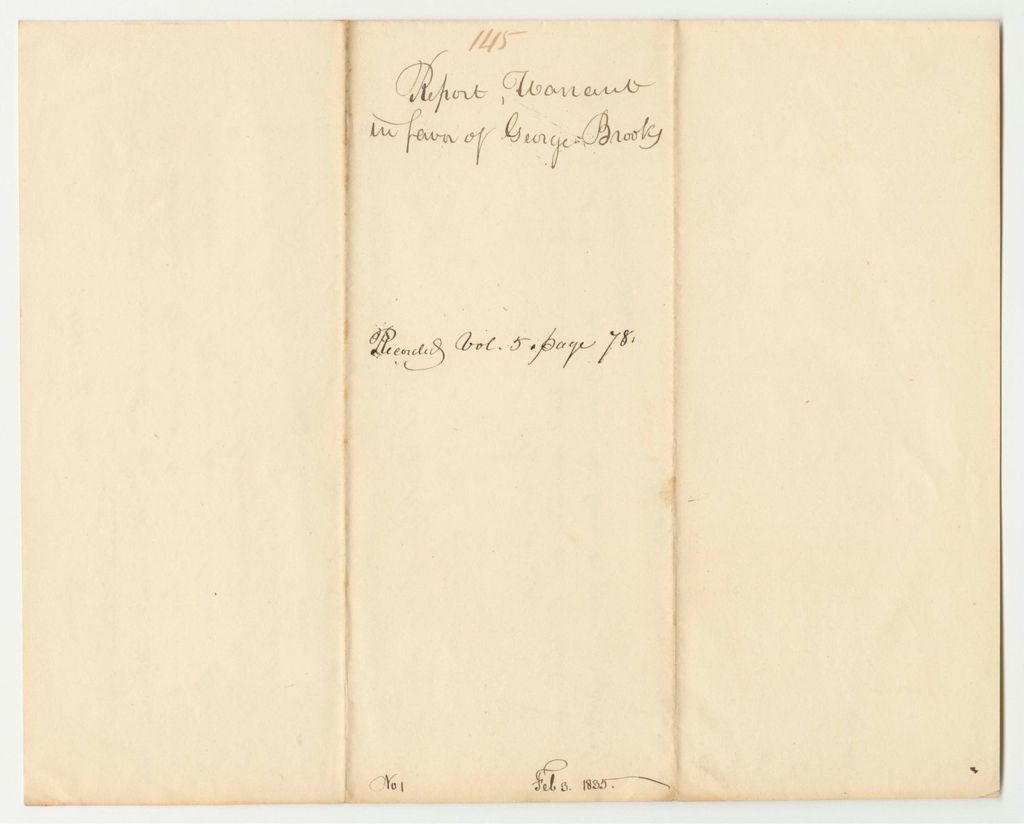 145
Report, Warrant
in favor of George Brooks
Recorded Vol. 5. page 78.
No 1
Feb 3. 1835.